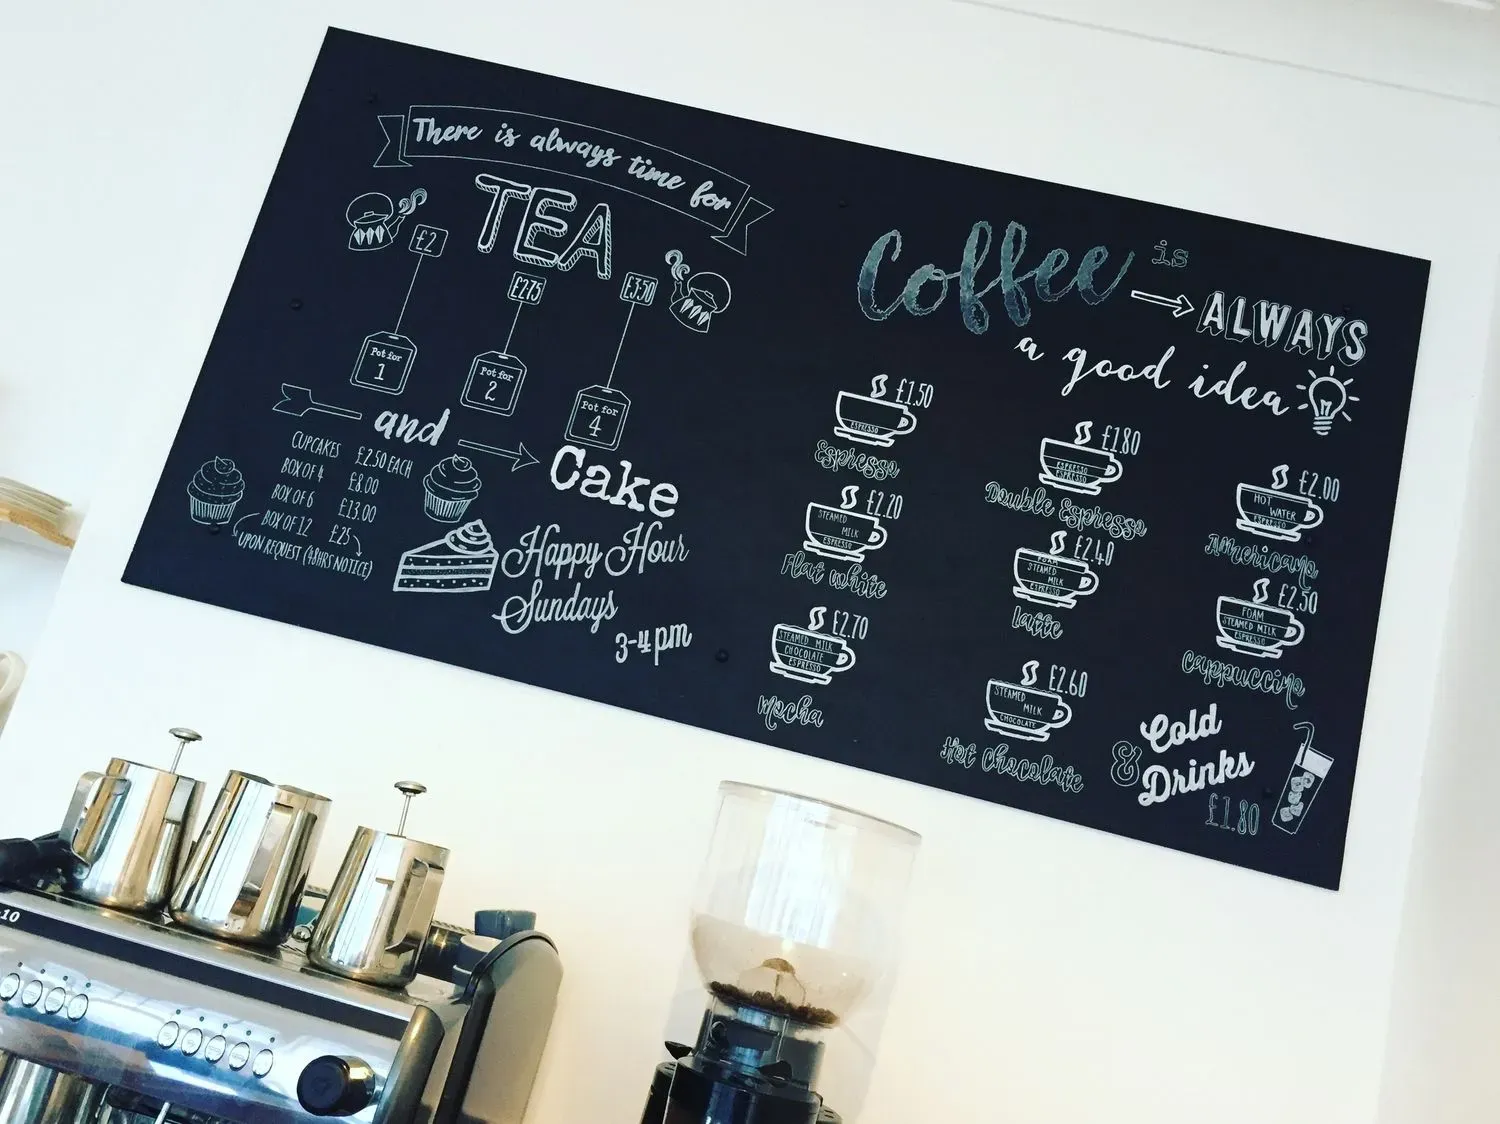 There is always time for
TEA
£2
£2.75
£3.50
Pot for
1
Pot for
2
Pot for
4
and
Cake
CUPCAKES £2.50 EACH
BOX OF 4 £8.00
BOX OF 6 £13.00
BOX OF 12 £25
UPON REQUEST (48HRS NOTICE)
Happy Hour
Sundays
3-4pm
Coffee is
ALWAYS
a good idea
£1.50
ESPRESSO
Espresso
£1.80
ESPRESSO
ESPRESSO
Double Espresso
£2.00
HOT
WATER
ESPRESSO
Americano
£2.20
STEAMED
MILK
ESPRESSO
Flat white
£2.40
STEAMED
MILK
ESPRESSO
latte
£2.50
FOAM
STEAMED MILK
ESPRESSO
cappuccino
£2.70
STEAMED MILK
CHOCOLATE
ESPRESSO
Mocha
£2.60
STEAMED
MILK
CHOCOLATE
Hot chocolate
& Cold
Drinks
£1.80
10